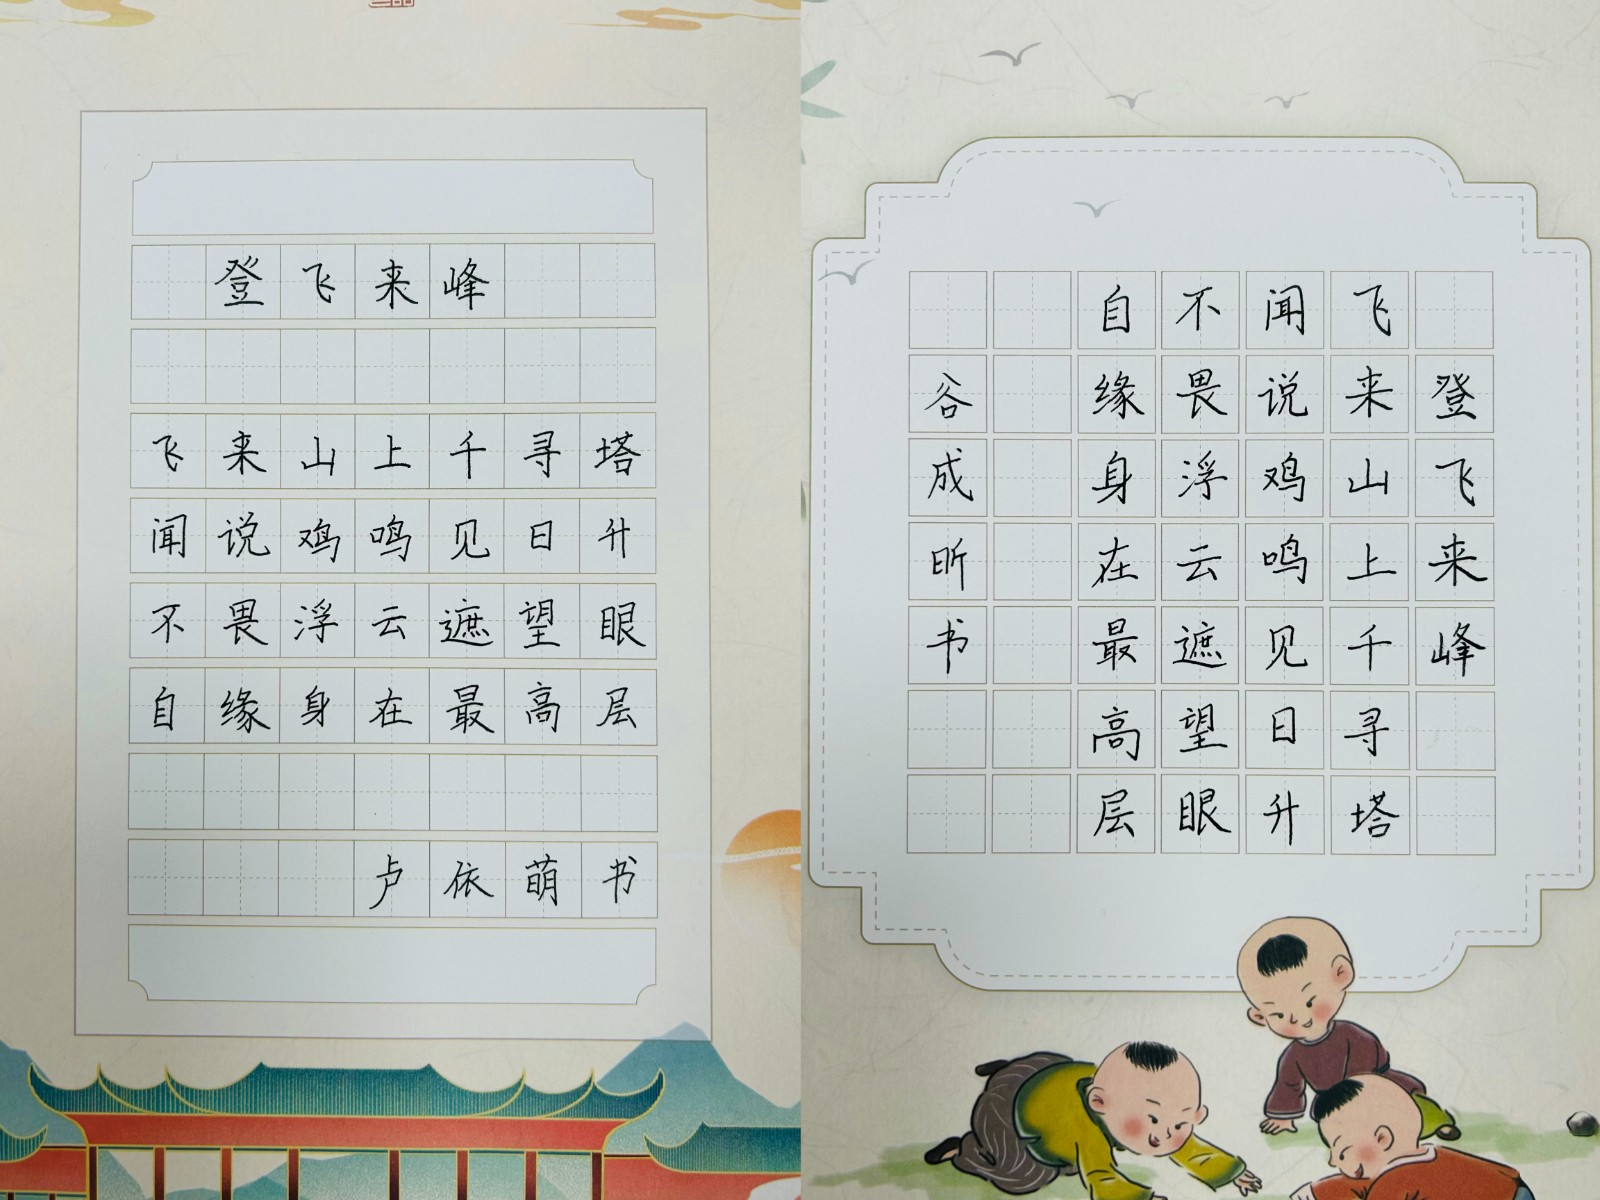 登飞来峰
飞来山上千寻塔
闻说鸡鸣见日升
不畏浮云遮望眼
自缘身在最高层
卢依萌书
登飞来峰
飞来山上千寻塔
闻说鸡鸣见日升
不畏浮云遮望眼
自缘身在最高层
谷成昕书